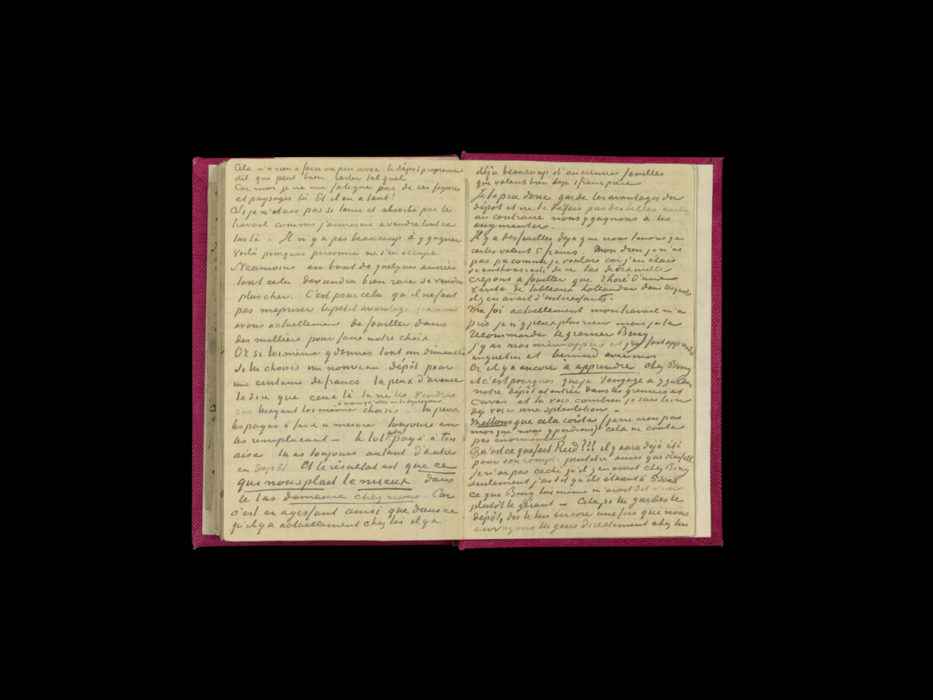 Cela n'a rien à faire ou peu avec le dépôt proprement
dit qui peut bien rester tel quel.
Car moi je ne me fatigue pas de ces figures
et paysages là. Et il en a tant!
Si je n'étais pas si tenu et absorbé par le
travail comme j'aimerais à vendre tout ce
tas là. Il n'y a pas beaucoup à y gagner
voilà pourquoi personne ne s'en occupe.
Neamoins au bout de quelques années
tout cela deviendra bien rare se vendra
plus cher. C'est pour cela qu'il ne faut
pas mepriser le petit avantage que nous
avons actuellement de fouiller dans
des milliers pour faire notre choix.
Or si toi même y donnes tout un dimanche
si tu choisis un nouveau dépôt pour
une centaine de francs tu peux d'avance
te dire que ceux là tu ne les vendras
pas les ayant toi même choisis
à moins qu'elles ne te deplaisent
tu peux
les payer à fur & à mesure toujours en
les remplacant – le lot payé à ton
aise tu as toujours autant d'autres
en depôt. Et le résultat est que ce
qui nous plait le mieux dans
le tas demeure chez nous. Car
c'est en agissant ainsi que dans ce
qu'il y a actuellement chez toi il y a
déjà beaucoup d'anciennes feuilles
qui valent bien déjà 1 franc pièce
Je te prie donc garde les avantages du
dépôt et ne te défais pas des belles
au contraire nous y gagnons à les
augmenter.
Il y a des feuilles déja que nous tenons qui
certes valent 5 francs. Mon dieu je n'ai
pas pu comme je voulais car j'en étais
si enthousiaste de ce tas de
crepons à fouiller que Thoré d'une
vente de tableaux hollandais dans laquelle
il y en avait d'interessants.
Ma foi actuellement mon travail m'a
pris je n'y peux plus rien mais je te
recommande le grenier Bing
J'y ai moi même appris et j'y ai fait apprendre
anquetin et bernard avec moi
Or il y a encore à apprendre chez Bing
et c'est pourquoi que je t'engage a y garder
notre dépôt et entrées dans les greniers et
caves et tu vois combien je suis loin
d'y voir une speculation –
Mettons que cela coûte (je ne crois pas
moi que nous y perdions) cela ne coûte
pas énormement
Qu'est ce que fait Reid??? il y aura déjà été
pour son compte peutêtre ainsi que Russell
je n'ai pas caché qu'il y en avait chez Bing
seulement j'ai dit qu'ils étaient à 5 sous
ce que Bing lui même m'avait dit
plutôt le gérant – Cela, si tu gardes le
dépôt, dis le leur encore une fois que nous
envoyons les gens directement chez lui